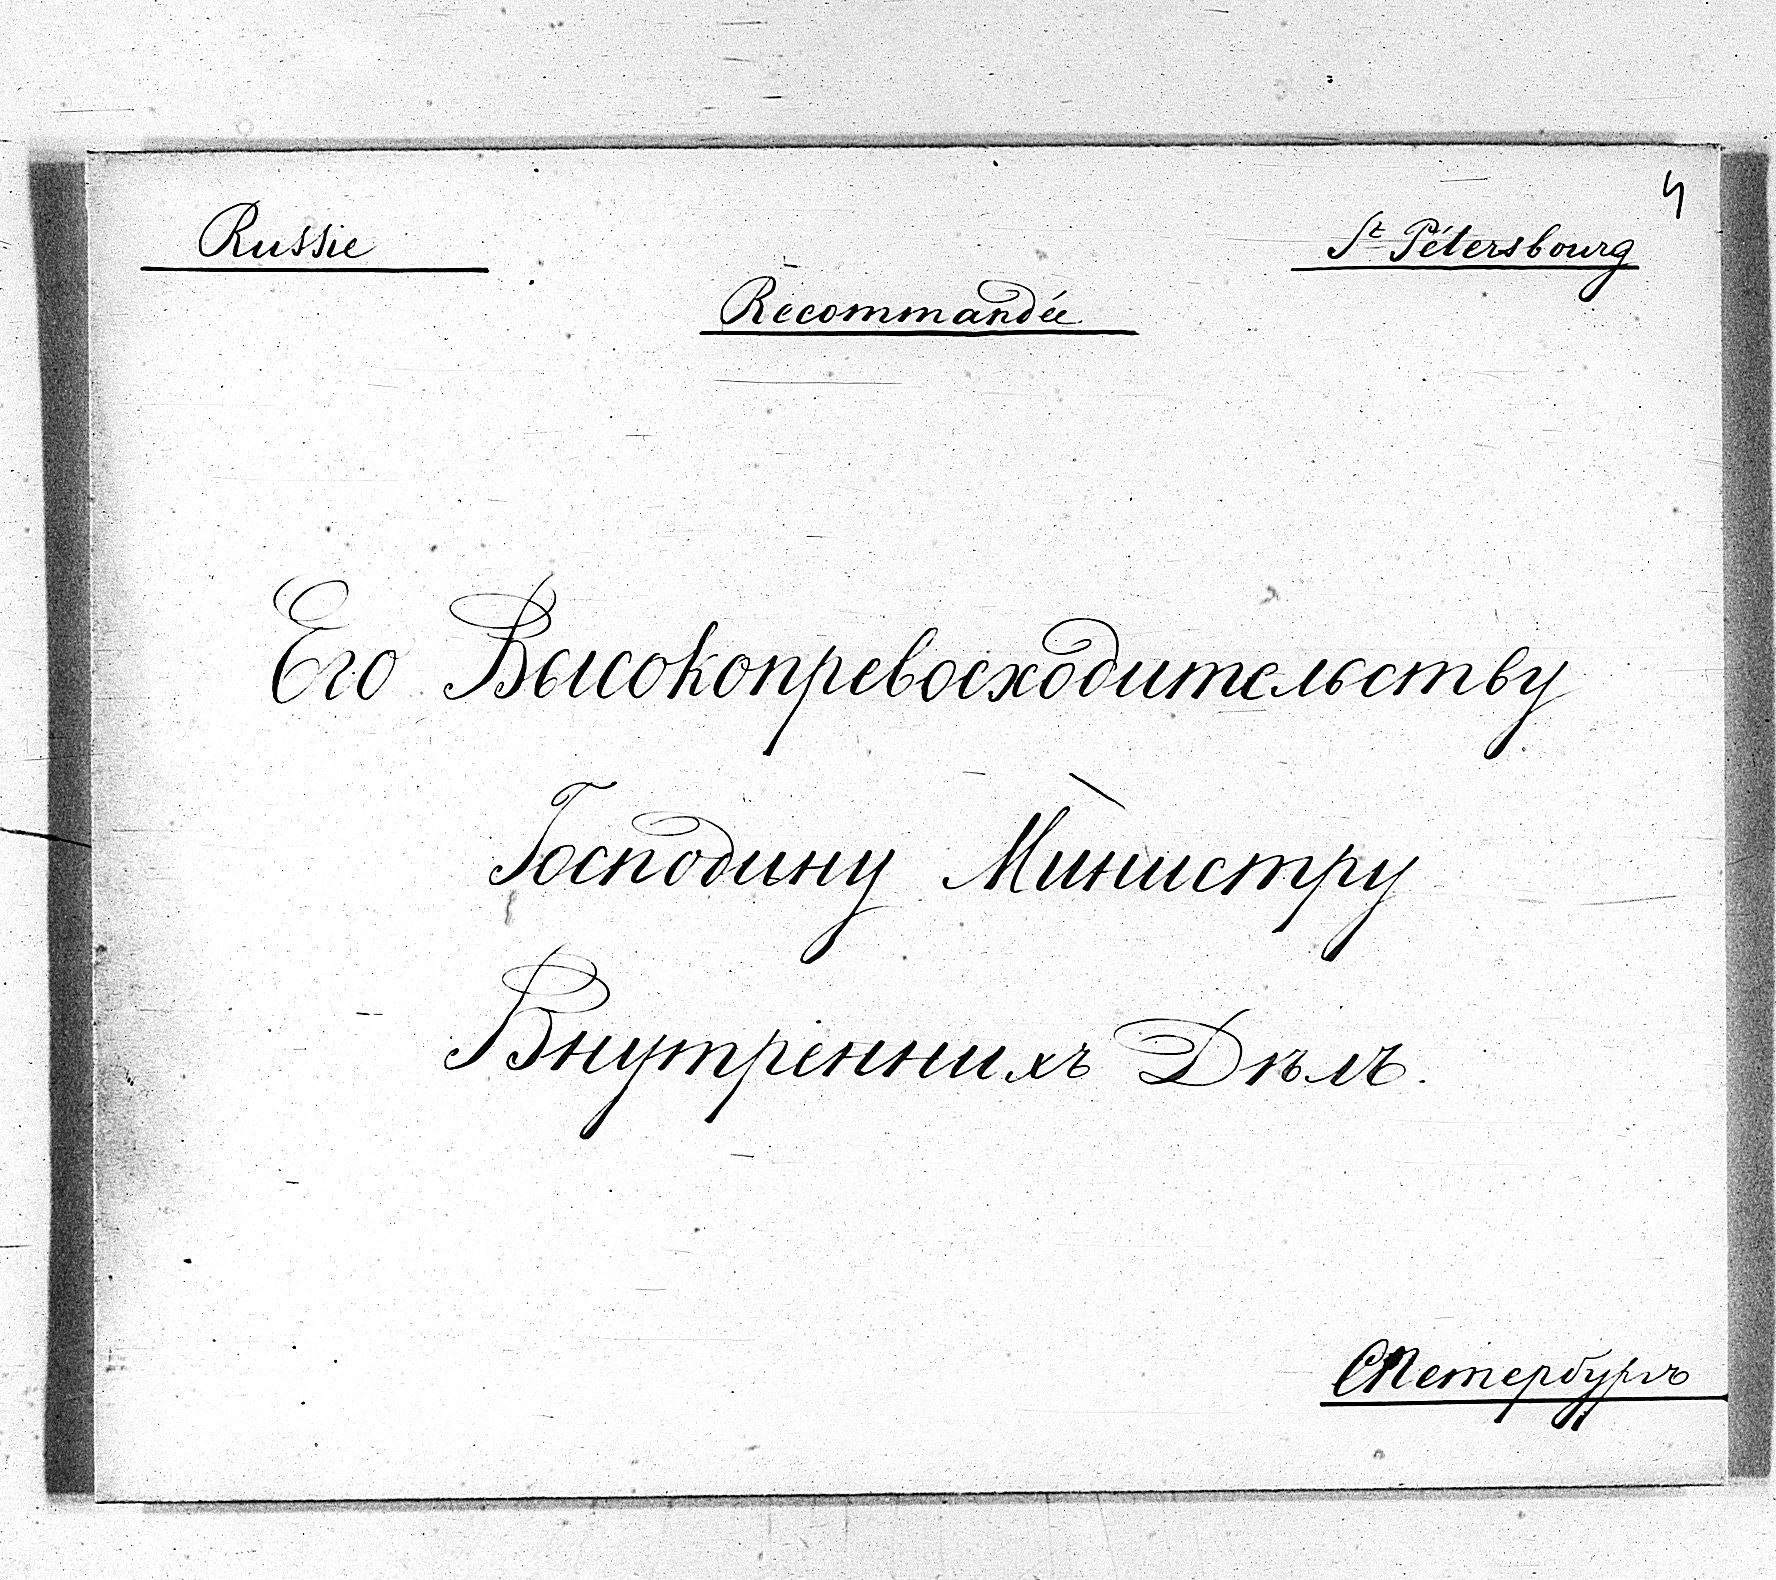 4
Russie
St Pétersbourg
Recommandée
Его Высокопревосходительству
Господину Министру
Внутреннихъ Дѣлъ.
СПетербургъ